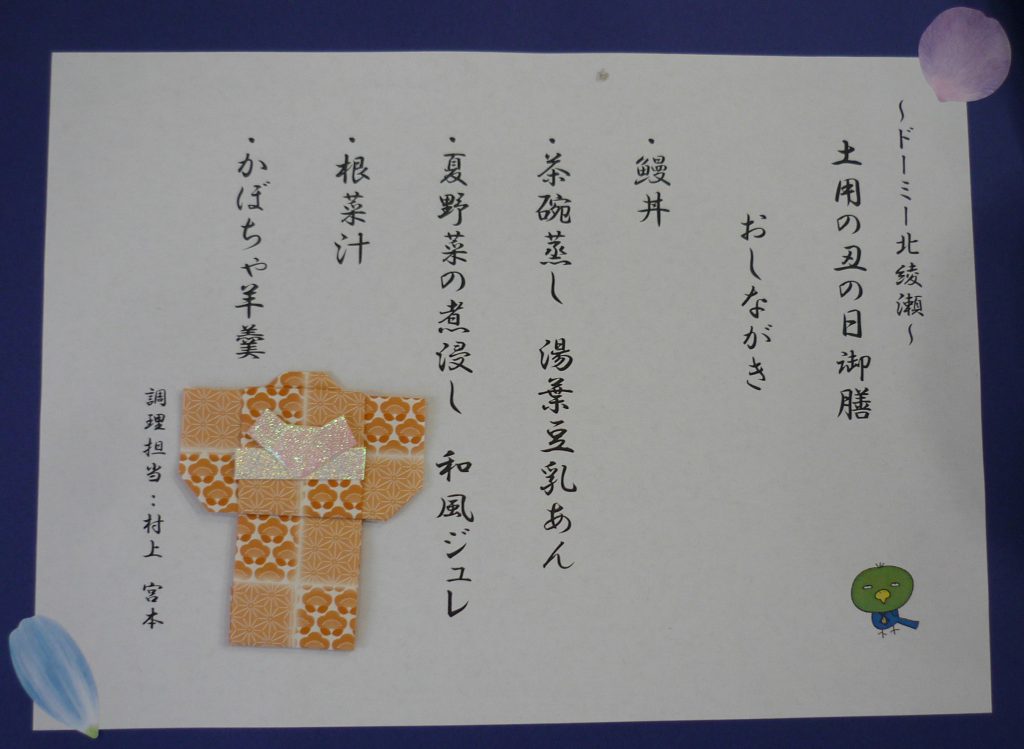 ～ドーミー北綾瀬～
土用の丑の日御膳
おしながき
・鰻丼
・茶碗蒸し　湯葉豆乳あん
・夏野菜の煮浸し　和風ジュレ
・根菜汁
・かぼちゃ羊羹
調理担当：村上　宮本